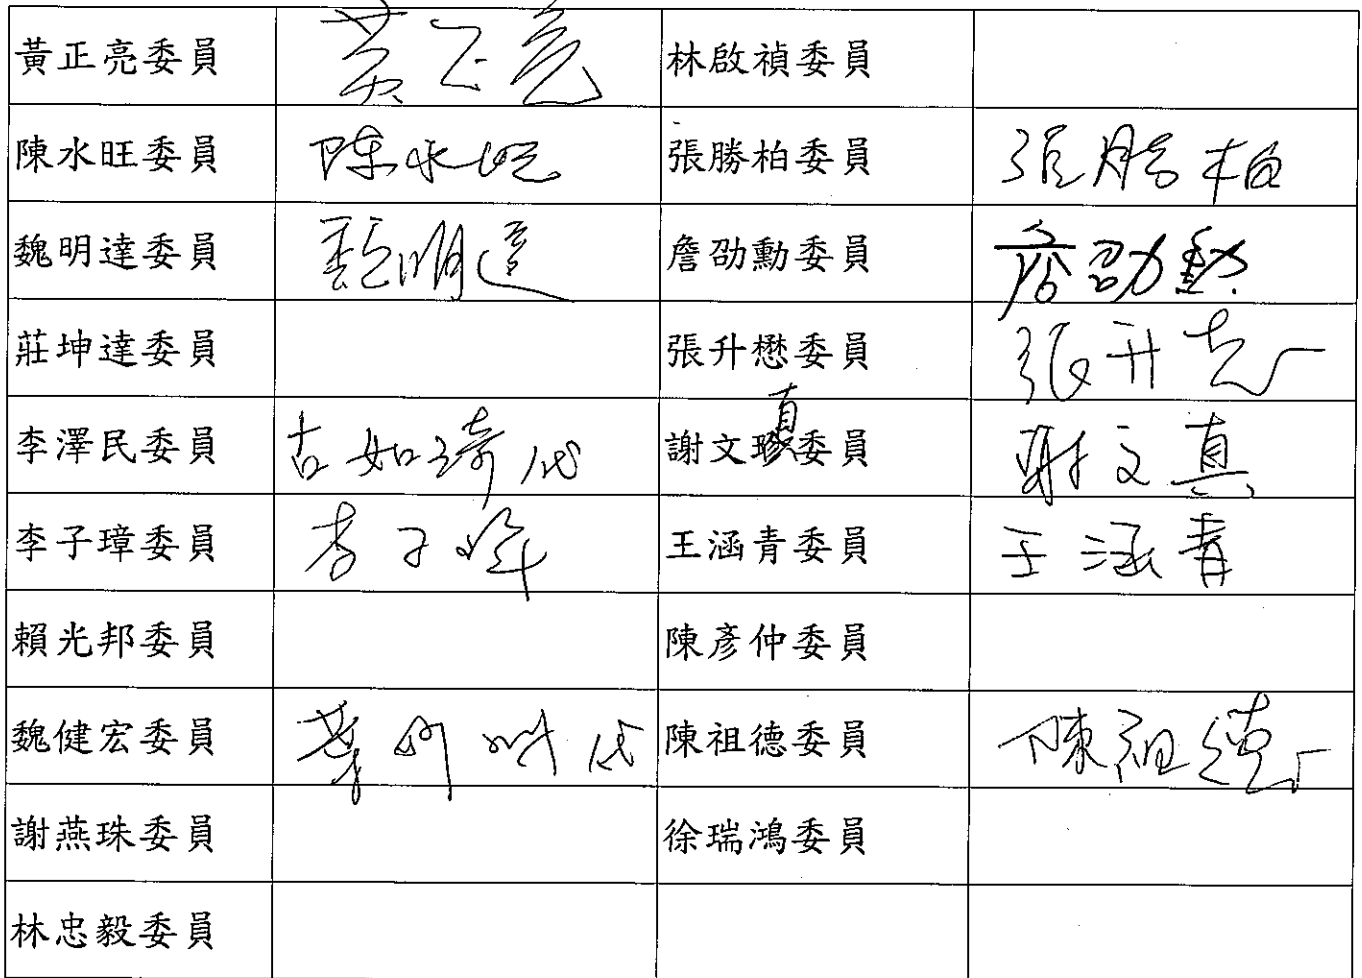 黃正亮委員 黃正亮 林啟禎委員
陳水旺委員 陳水旺 張勝柏委員 張勝柏
魏明達委員 魏明達 詹劭勳委員 詹劭勳
莊坤達委員 張升懋委員 張升懋
李澤民委員 古如琦代 謝文真委員 謝文真
李子璋委員 李子璋 王涵青委員 王涵青
賴光邦委員 陳彥仲委員
魏健宏委員 葉 代 陳祖德委員 陳祖德
謝燕珠委員 徐瑞鴻委員
林忠毅委員